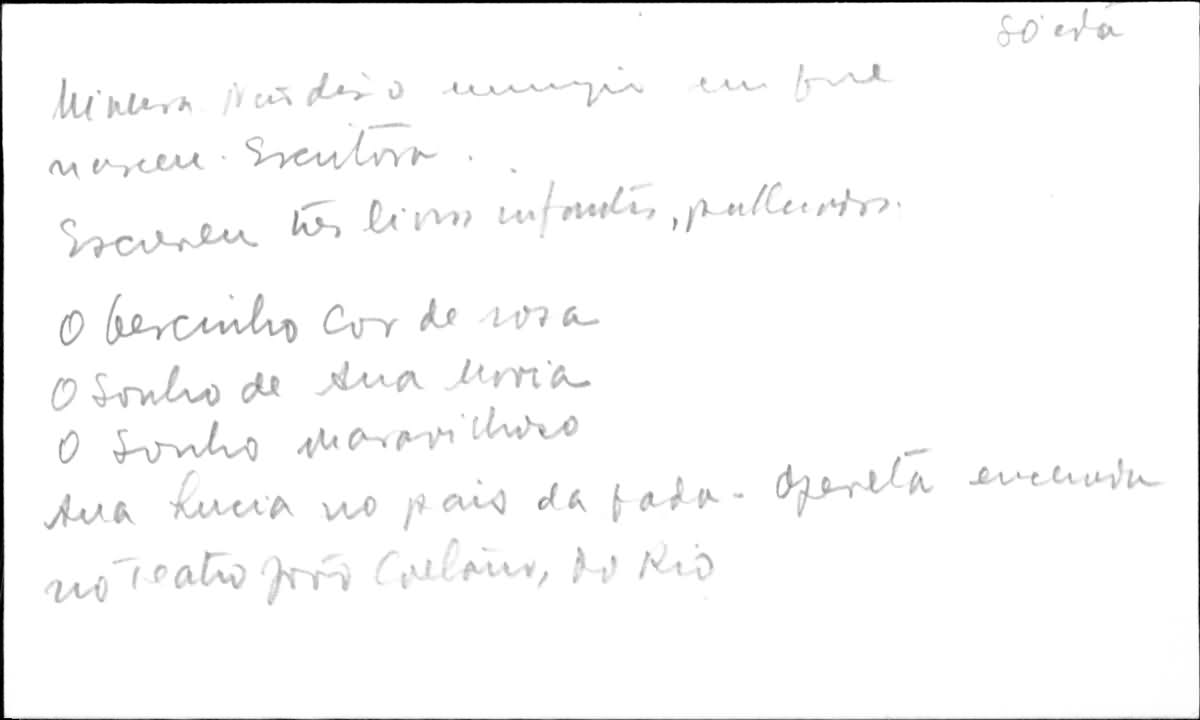 nasceu. Escritora.
Escreveu três livros infantis, publicados.
O bercinho cor de rosa
O Sonho de Ana Maria
O Sonho maravilhoso
Ana Lucia no pais da fada - Opereta encenada
no Teatro João Caetano, do Rio